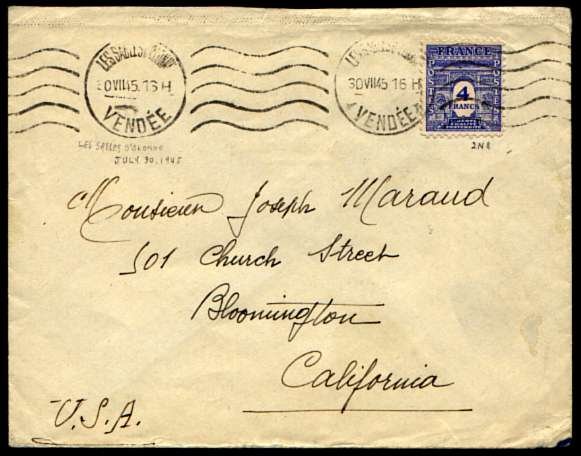 LES SABLES D'OLONNE
30 VII 45. 16 H
VENDÉE
LES SABLES D'OLONNE
30 VII 45. 16 H
VENDÉE
FRANCE
POSTES
POSTES
4
FRANCS
LES SABLES D'OLONNE
JULY 30, 1945
2N8
Monsieur Joseph Maraud
501 Church Street
Bloomington
California
U.S.A.